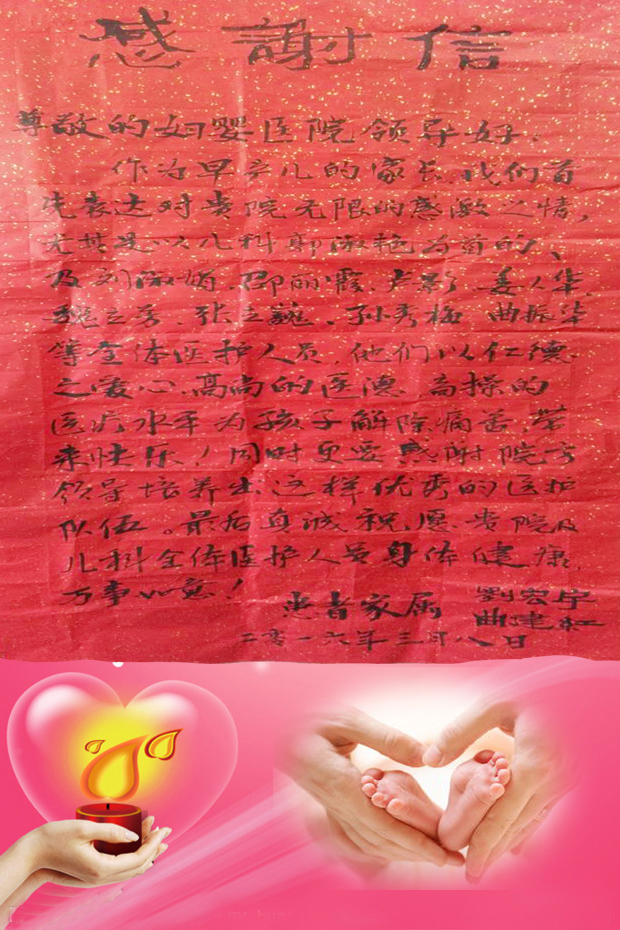 感謝信
尊敬的妇婴医院领导好.
作为早产儿的家长,我们首
先表达对贵院无限的感激之情,
尤其是以儿科郭淑艳为首的、
及刘淑娟.邵丽霞.卢影.姜人华.
魏立芳.张立巍.孙秀梅.曲振华
等全体医护人员,他们以仁德
之爱心,高尚的医德,高操的
医疗水平为孩子解除痛苦,带
来快乐!同时更要感謝院方
领导培养出这样优秀的医护
队伍。最后真诚祝愿贵院及
儿科全体医护人员身体健康,
万事如意!
患者家属 劉宏宇
曲建虹
二零一六年三月八日